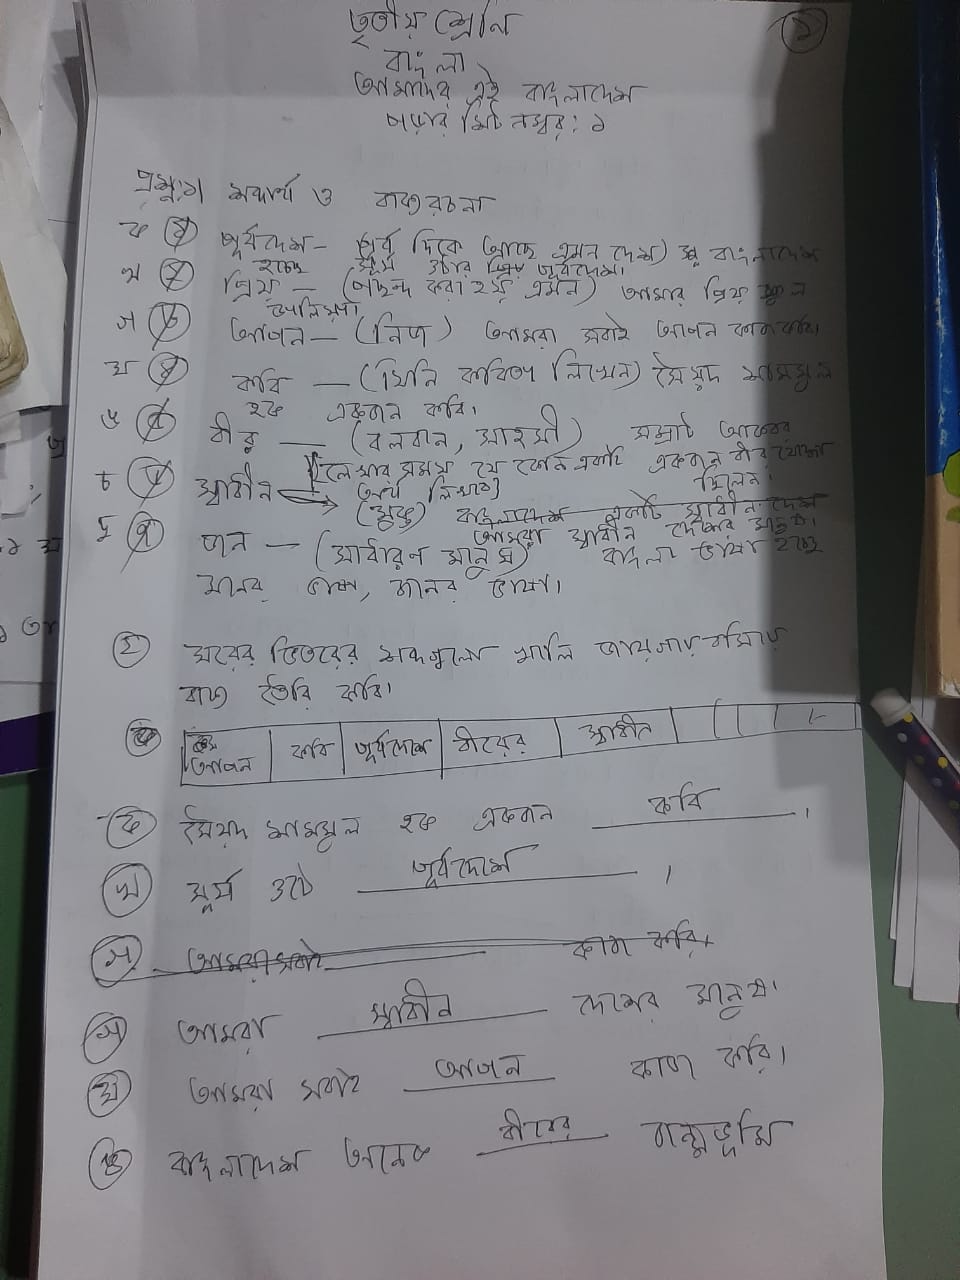 তৃতীয় শ্রেনি
১
বাংলা
আমাদের এই বাংলাদেশ
পড়ার সিট নম্বর: ১
প্রশ্ন:১। শব্দার্থ ও বাক্যরচনা
ক পূর্বদেশ- পূর্ব দিকে আছে এমন দেশ) বাংলাদেশ
হচ্ছে সূর্য ওঠার পূর্বদেশ।
খ প্রিয় - (পছন্দ করা হয় এমন) আমার প্রিয় ফুল
গ আপন - (নিজ) আমরা সবাই আপন কাজ করি।
ঘ কবি - (যিনি কবিতা লিখেন) সৈয়দ শামসুল
হক একজন কবি।
ঙ বীর - (বলবান, সাহসী) সম্রাট আকবর
একজন বীর যোদ্ধা
ছিলেন।
লেখার সময় যে কোন একটি
অর্থ লিখবে
চ স্বাধীন (মুক্ত) বাংলাদেশ একটি স্বাধীন দেশ
আমরা স্বাধীন দেশের মানুষ।
ছ জন - (সাধারণ মানুষ) বাংলা ভাষা হচ্ছে
মনের ভাষা, জনের ভাষা।
২ ঘরের ভিতরের শব্দগুলো খালি জায়গায় বসিয়ে
বাক্য তৈরি করি।
আপন কবি পূর্বদেশে বীরের স্বাধীন
ক সৈয়দ শামসুল হক একজন কবি ।
খ সূর্য ওঠে পূর্বদেশে ।
গ আমরা সবাই কাজ করি।
গ আমরা স্বাধীন দেশের মানুষ।
ঘ আমরা সবাই আপন কাজ করি।
ঙ বাংলাদেশ অনেক বীরের জন্মভূমি